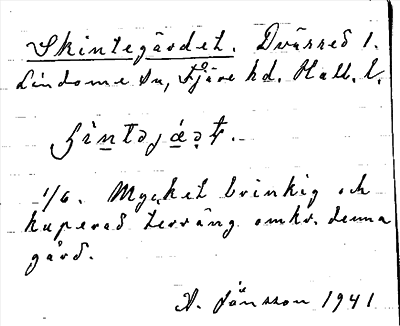 Skintegärdet. Dvärred 1.
Lindome sn, Fjäre hd. Hall. l.
1/6. Mycket brinkig och
kuperad terräng omkr. denna
gård.
A. Jönsson 1941